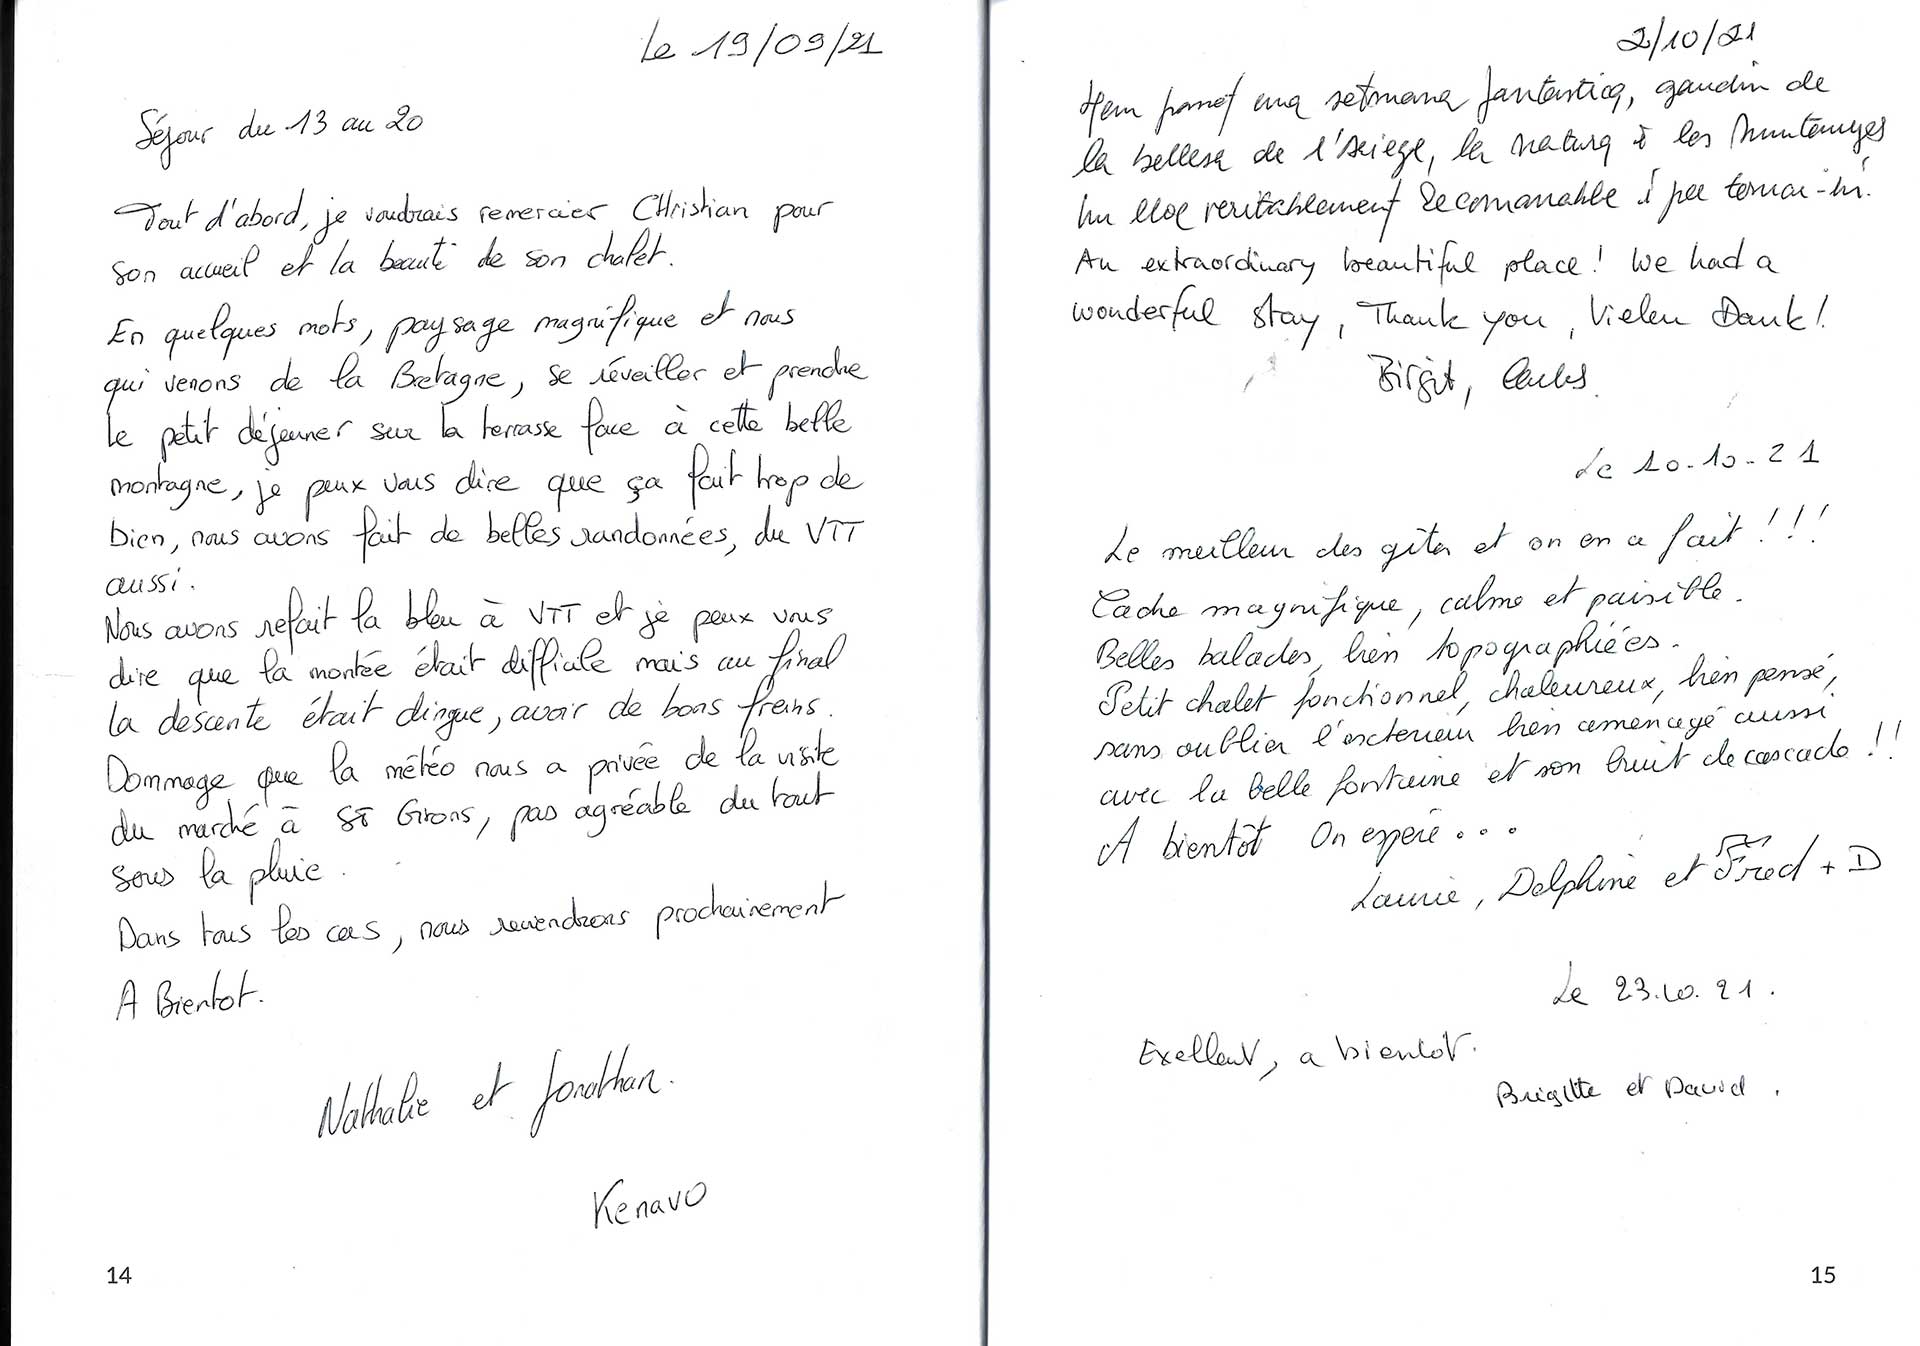 Le 19/09/21
Séjour du 13 au 20
Tout d'abord, je voudrais remercier CHristian pour
son accueil et la beauté de son chalet.
En quelques mots, paysage magnifique et nous
qui venons de la Bretagne, se réveiller et prendre
le petit déjeuner sur la terrasse face à cette belle
montagne, je peux vous dire que ça fait trop de
bien, nous avons fait de belles randonnées, du VTT
aussi.
Nous avons refait la bleu à VTT et je peux vous
dire que la montée était difficile mais au final
la descente était dingue, avoir de bons freins.
Dommage que la météo nous a privée de la visite
du marché à St Girons, pas agréable du tout
sous la pluie.
Dans tous les cas, nous reviendrons prochainement
A Bientot.
Nathalie et Jonathan.
Kenavo
14
2/10/21
Hem passat una setmana fantastica, gaudin de
la bellesa de l'Ariege, la natura i les muntanyes
Un lloc veritablement Recomanable i per tornar-hi.
An extraordinary beautiful place! We had a
wonderful stay, Thank you, Vielen Dank!
Birgit, Carles
Le 10-10-21
Le meilleur des gîtes et on en a fait!!!
Cadre magnifique, calme et paisible.
Belles balades, bien topographiées.
Petit chalet fonctionnel, chaleureux, bien pensé,
sans oublier l'exterieur bien amenagé aussi
avec la belle fontaine et son bruit de cascade!!
A bientôt On espère...
Laurie, Delphine et Fred + D
Le 23.10.21.
Exellent, a bientot.
Brigitte et David.
15